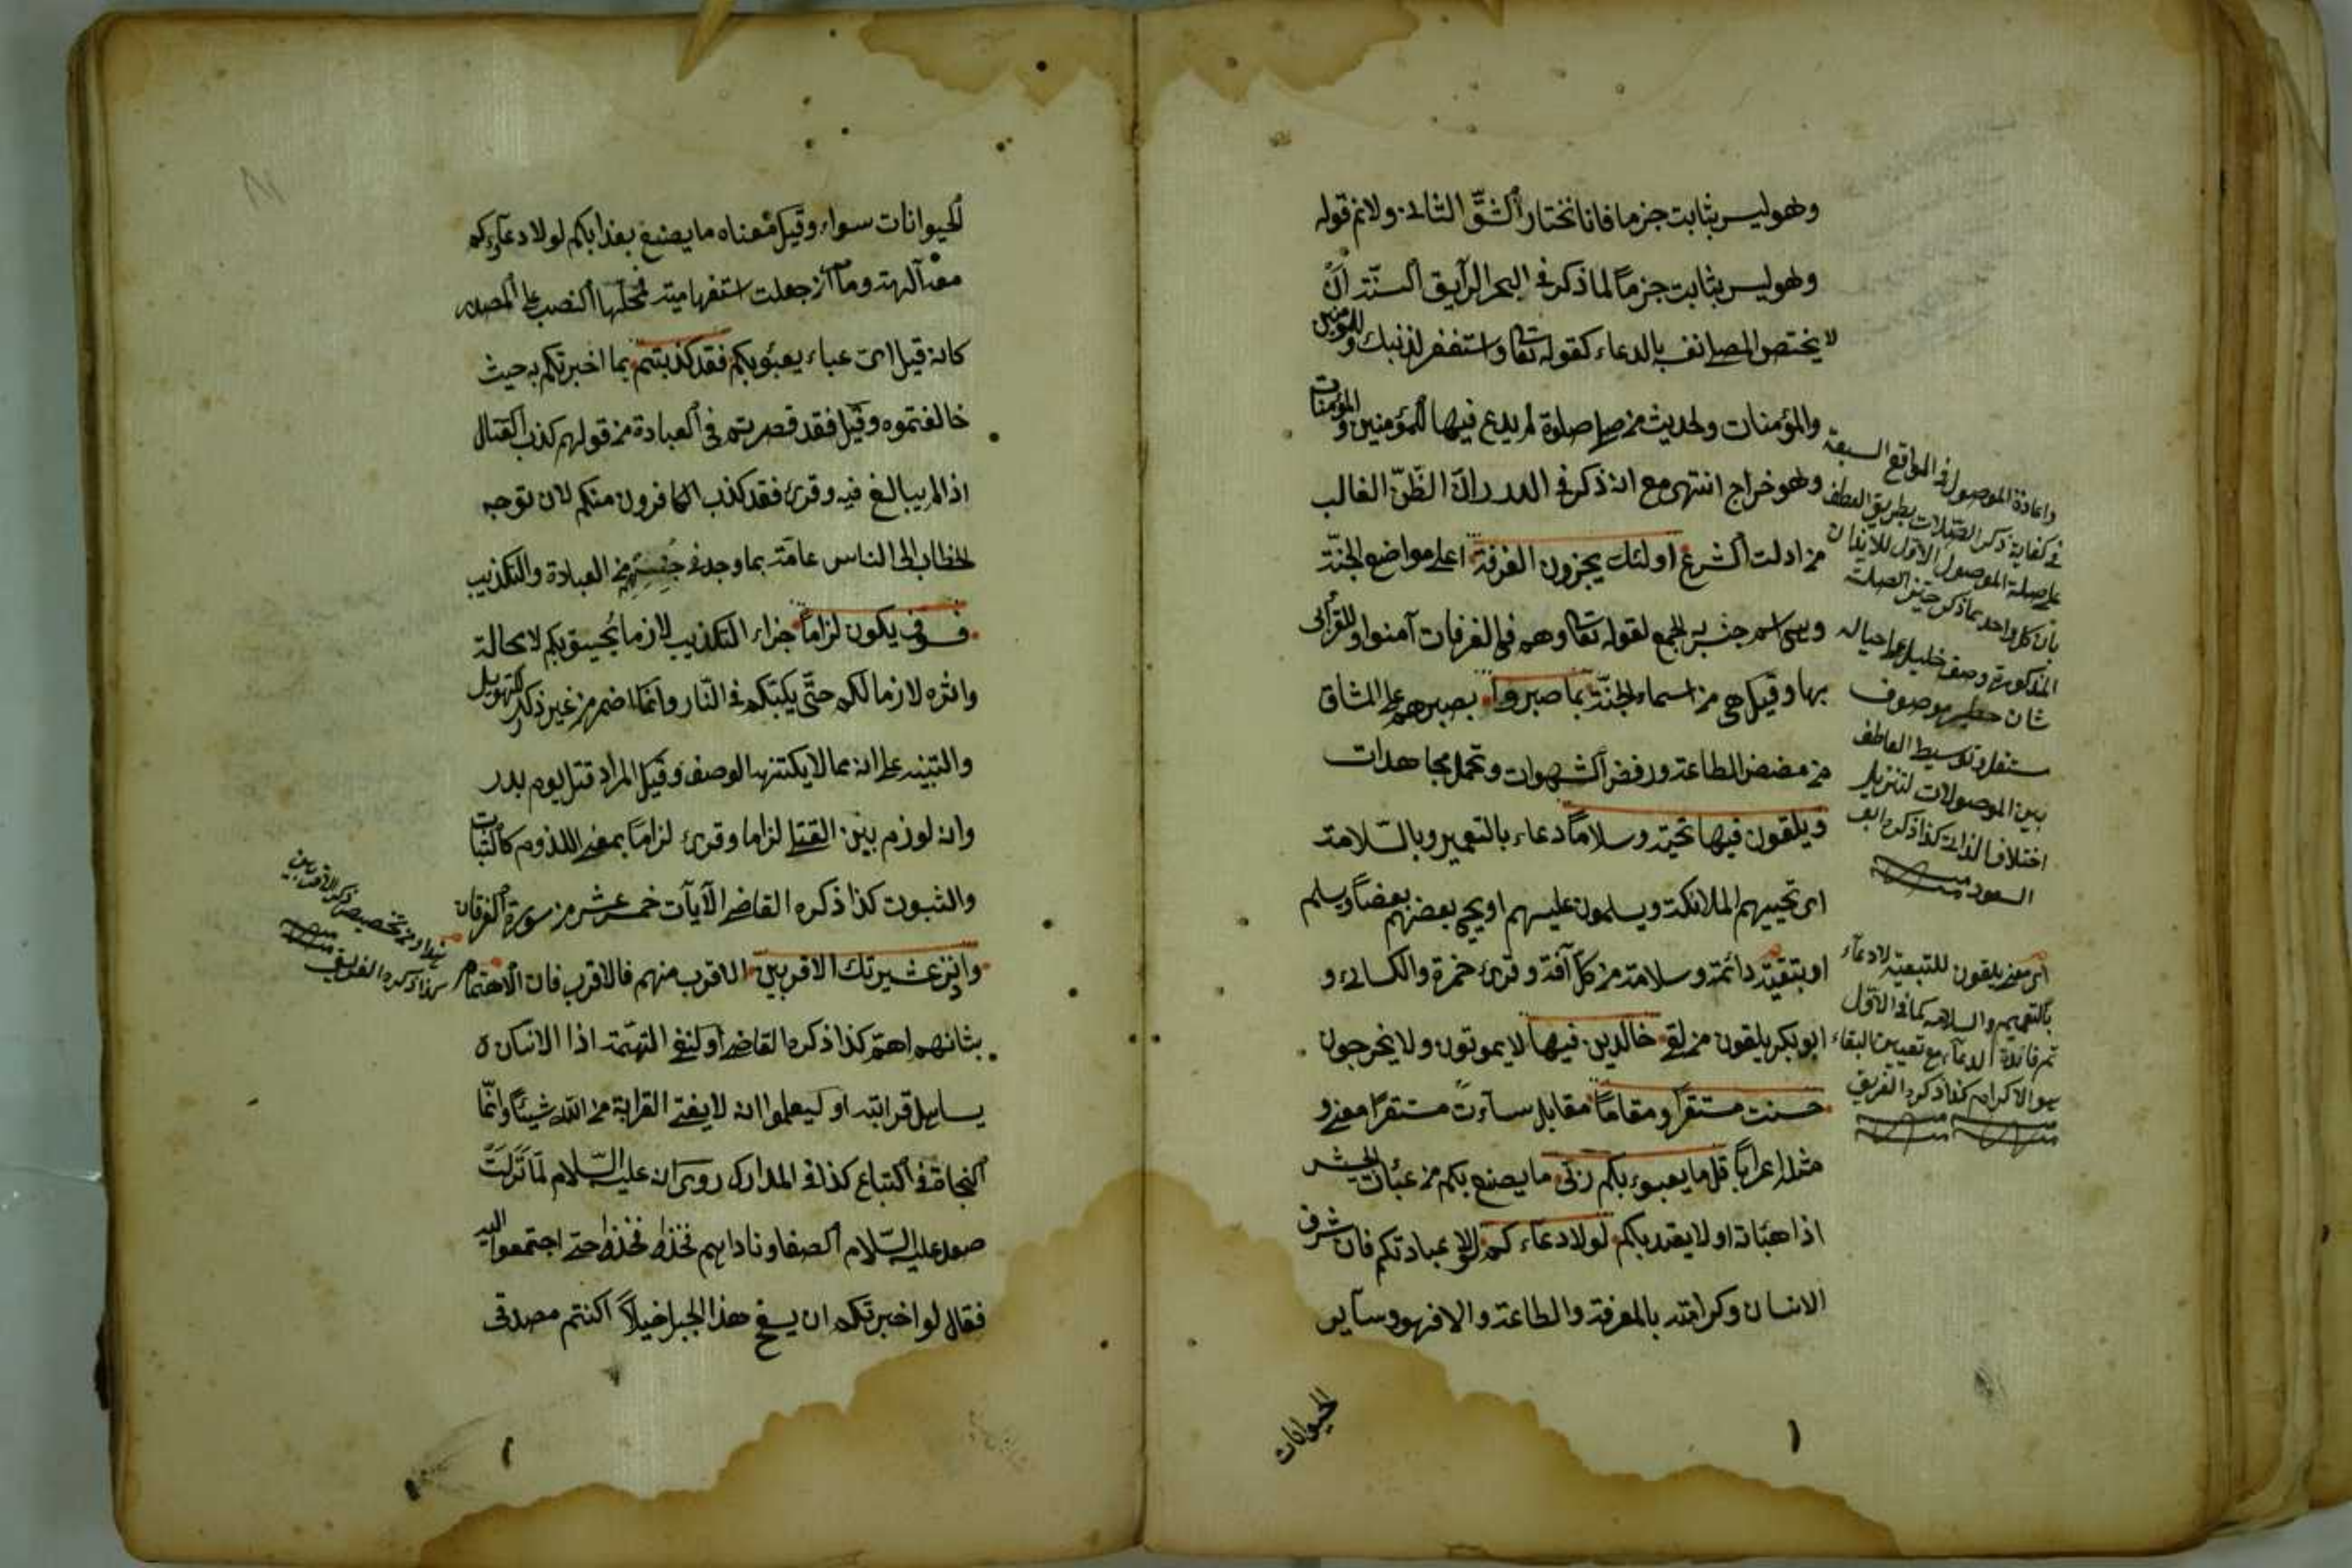 وهو ليس بثابت جزما فانا نختار الشق الثاني ولانم قوله
وهو ليس بثابت جزماً لما ذكر في البحر الرايق السنة أن
لا يختص المصلي نفسه بالدعاء كقوله تعا واستغفر لذنبك وللمؤمنين
والمؤمنات ولحديث من صلى صلوة لم يدع فيها للمؤمنين والمؤمنات
وهو خراج انتهى مع انه ذكر في الدرر ان الظنّ الغالب
من ادلت الشرع اولئك يجزون الغرفة اعلى مواضع الجنّة
وهي اسم جنس به الجمع لقوله تعا وهم في الغرفات آمنوا وللقرائى
بها وقيل هي من اسماء الجنّة بما صبروا بصبرهم على المشاق
من مضض الطاعة ورفض الشهوات وتحمل مجاهدات
ويلقون فيها تحية وسلاماً دعاء بالتعمير وبالسّلامة
اى تحييهم الملائكة ويسلمون عليهم او يحيى بعضهم بعضاً ويسلم
او بتقية دائمة وسلامة من كل آفة وقرئ حمزة والكسائى و
ابو بكر يلقون من لقى خالدين فيها لا يموتون ولا يخرجون
حسنت مستقراً ومقاماً مقابل ساءت مستقرًا معنى و
مثله اعراباً قل ما يعبوء بكم ربّى ما يصنع بكم من عبئات الجيش
اذا هيّاته او لا يعتد بكم لولا دعاء كم لولا عبادتكم فان شرف
الانسان وكرامته بالمعرفة والطاعة والا فهو وسآير
الحيوانات
واعادة الموصول في المواقع السبعة
في كفاية ذكر الصّلات بطريق العطف
على صلة الموصول الاوّل للايذان
بان كل واحد مما ذكر حيّز الصلة
المذكورة وصف جليل على حياله
شان موصوف
مستقل وتوسيط العاطف
بين الموصولات لتنزيل
اختلاف الذات كذا ذكره ابو
السعود
اى معنى يلقون للتبعية لادعآء
بالتعمير والسلامة كما في الاوّل
ثم فائدة الدعآء مع تعيين البقاء
هو الاكرام كذا ذكره
الحيوانات سواء وقيل معناه ما يصنع بعذابكم لولا دعآؤكم
معه آلهة وما ان جعلت استفهامية فمحلّها النصب على المصدر
كانه قيل اى عباء يعبئوبكم فقد كذبتم بما اخبرتكم به حيث
خالفتموه وقيل فقد قصرتم في العبادة من قولهم كذب القتال
اذا لم يبالغ فيه وقرئ فقد كذب الكافرون منكم لان توجه
الخطاب الى الناس عامّة بما وجد في جنسهم من العبادة والتكذيب
فسوف يكون لزاماً جزاء التكذيب لازما يحيق بكم لا محالة
واثره لازما لكم حتّى يكبتكم في النّار وانما اضمر من غير ذكر للتهويل
والتنبيه على انه مما لا يكتنهه الوصف وقيل المراد قتل يوم بدر
وانه لوزم بين القتلى لزاما وقرئ لزاماً بمعنى اللزوم كالثبات
والثبوت كذا ذكره القاضى الآيات خمس عشر من سورة الفرقان
وانذر عشيرتك الاقربين الاقرب منهم فالاقرب فان الاهتمام
بشانهم اهمّ كذا ذكره القاضى او لنفى التهمّة اذا الانسان
يساهل قرابته او ليعلموا انه لا يغنى القرابة من الله شيئاً وانّما
النجاة في اتباع كذا في المدارك روى انه عليه السّلام لمّا نزلت
صعد عليه السّلام الصفا وناداهم فخذا فخذا حتى اجتمعوا اليه
فقال لو اخبرتكم ان بسفح هذا الجبل خيلاً اكنتم مصدقى
تخصيص ذكر الاقربين
كذا ذكره